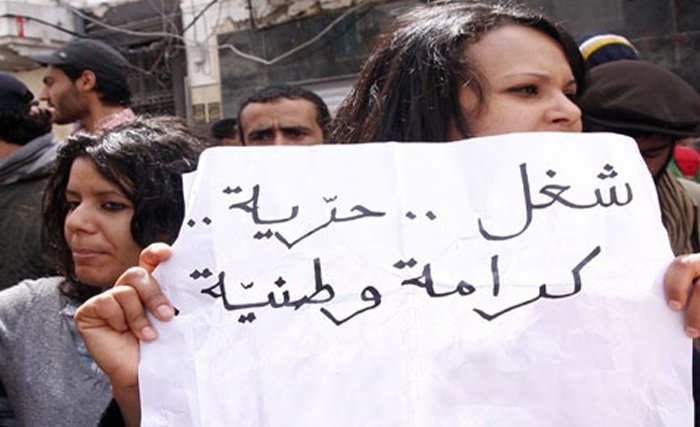 شغل .. حرّية ..
كرامة وطنيّة.